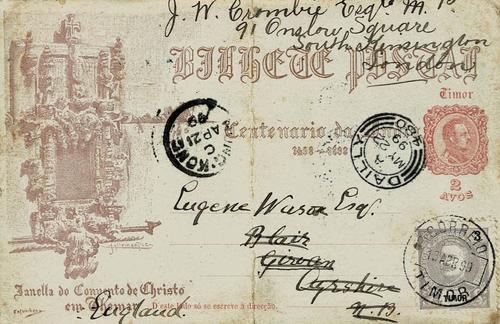 J. W. Crombie Esqre M. P.
91 Onslow Square
South Kensington
London
BILHETE POSTAL
Timor
Centenario da
1498-1898
HONG KONG
C
AP 21
99
DAILLY
A
MY 22
99
480
2
AVOS
Eugene Wason Esq.
Blair
Girvan
Ayrshire
N.B.
England
Janella do Convento de Christo
em Thomar
D'este lado só se escreve a direcção.
CORREIO
ABR
TIMOR
TIMOR